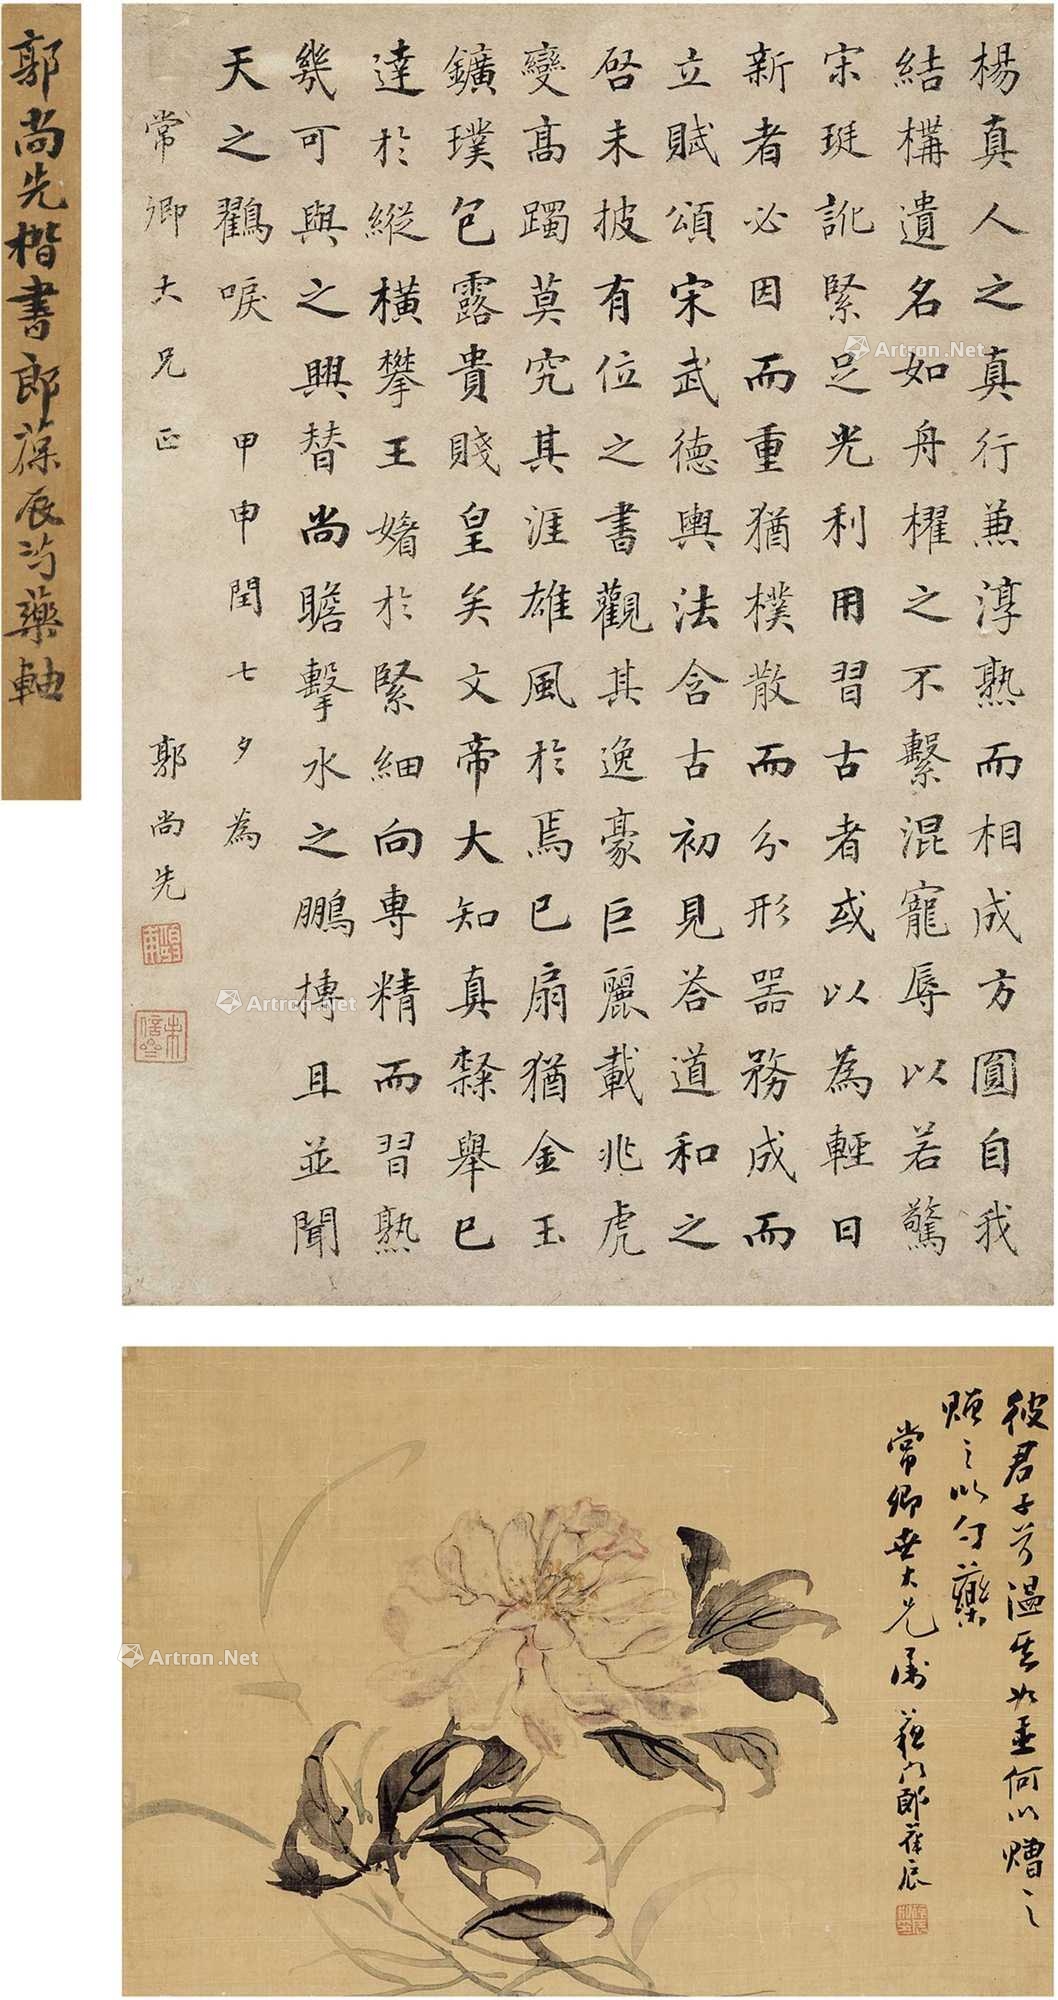 郭尚先楷書郎葆辰芍藥軸
楊真人之真行兼淳熟而相成方圓自我
結構遺名如舟櫂之不繫混寵辱以若驚
宋珽訛緊足光利用習古者或以為輕日
新者必因而重猶樸散而分形器務成而
立賦頌宋武德輿法含古初見答道和之
啓未披有位之書觀其逸豪巨麗載兆虎
變高躅莫究其涯雄風於焉已扇猶金玉
鑛璞包露貴賤皇矣文帝大知真隸舉已
達於縱橫攀王媎於緊細向專精而習熟
幾可與之興替尚瞻擊水之鵬摶且並聞
天之鸛唳 甲申閏七夕為
常卿大兄正 郭尚先
彼君子兮溫其如玉何以贈之
贈之以勺藥
常卿世大兄屬 蘇門郎葆辰
Artron.Net
Artron.Net
Artron.Net